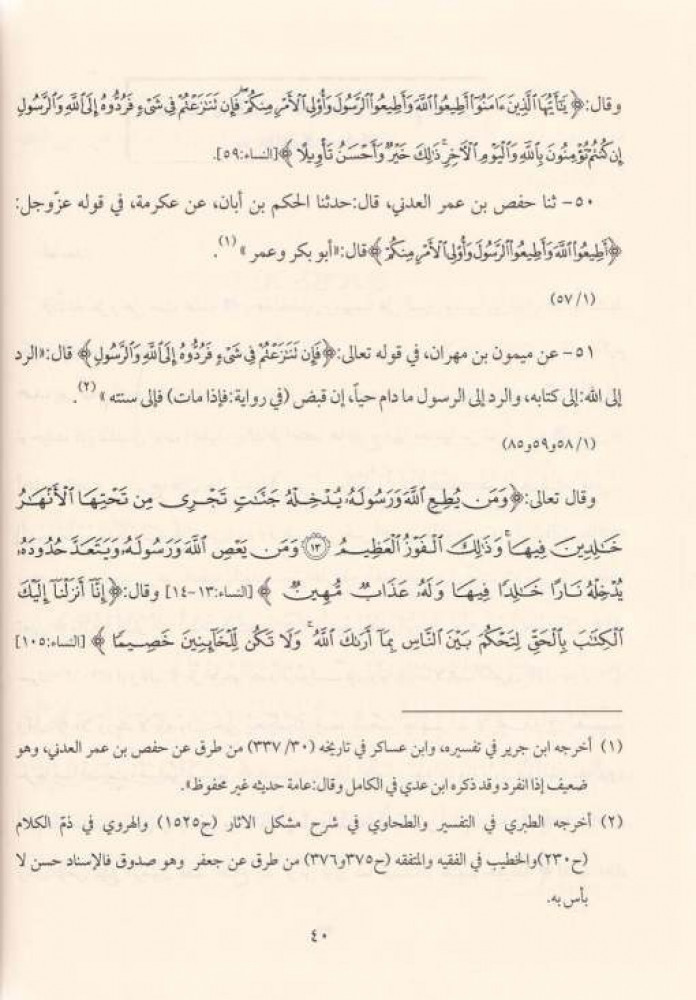 وقال:﴿ يَٰٓأَيُّهَا الَّذِينَ ءَامَنُوٓا۟ أَطِيعُوا۟ اللَّهَ وَأَطِيعُوا۟ الرَّسُولَ وَأُو۟لِى الْأَمْرِ مِنكُمْ ۖ فَإِن تَنَٰزَعْتُمْ فِى شَىْءٍ فَرُدُّوهُ إِلَى اللَّهِ وَالرَّسُولِ
إِن كُنتُمْ تُؤْمِنُونَ بِاللَّهِ وَالْيَوْمِ الْءَاخِرِ ۚ ذَٰلِكَ خَيْرٌ وَأَحْسَنُ تَأْوِيلًا ﴾[النساء:٥٩].
٥٠- ثنا حفص بن عمر العدني، قال:حدثنا الحكم بن أبان، عن عكرمة، في قوله عزّوجل:
﴿أَطِيعُوا۟ اللَّهَ وَأَطِيعُوا۟ الرَّسُولَ وَأُو۟لِى الْأَمْرِ مِنكُمْ﴾قال:«أبو بكر وعمر »(١).
(٥٧/١)
٥١- عن ميمون بن مهران، في قوله تعالى:﴿فَإِن تَنَٰزَعْتُمْ فِى شَىْءٍ فَرُدُّوهُ إِلَى اللَّهِ وَالرَّسُولِ﴾ قال:«الرد
إلى الله:إلى كتابه، والرد إلى الرسول ما دام حياً، إن قبض (في رواية:فإذا مات) فإلى سنته »(٢).
(٥٨/١و٥٩و٨٥)
وقال تعالى:﴿وَمَن يُطِعِ اللَّهَ وَرَسُولَهُۥ يُدْخِلْهُ جَنَّٰتٍ تَجْرِى مِن تَحْتِهَا الْأَنْهَٰرُ
خَٰلِدِينَ فِيهَا ۚ وَذَٰلِكَ الْفَوْزُ الْعَظِيمُ ١٣ وَمَن يَعْصِ اللَّهَ وَرَسُولَهُۥ وَيَتَعَدَّ حُدُودَهُۥ
يُدْخِلْهُ نَارًا خَٰلِدًا فِيهَا وَلَهُۥ عَذَابٌ مُّهِينٌ ﴾ [النساء:١٣-١٤] وقال:﴿إِنَّآ أَنزَلْنَآ إِلَيْكَ
الْكِتَٰبَ بِالْحَقِّ لِتَحْكُمَ بَيْنَ النَّاسِ بِمَآ أَرَىٰكَ اللَّهُ ۚ وَلَا تَكُن لِّلْخَآئِنِينَ خَصِيمًا ﴾ [النساء:١٠٥]
(١) أخرجه ابن جرير في تفسيره، وابن عساكر في تاريخه (٣٠/ ٣٣٧) من طرق عن حفص بن عمر العدني، وهو
ضعيف إذا انفرد وقد ذكره ابن عدي في الكامل وقال:عامة حديثه غير محفوظ».
(٢) أخرجه الطبري في التفسير والطحاوي في شرح مشكل الاثار (ح١٥٢٥) والهروي في ذمّ الكلام
(ح٢٣٠)والخطيب في الفقيه والمتفقه (ح٣٧٥و٣٧٦) من طرق عن جعفر وهو صدوق فالإسناد حسن لا
بأس به.
٤٠